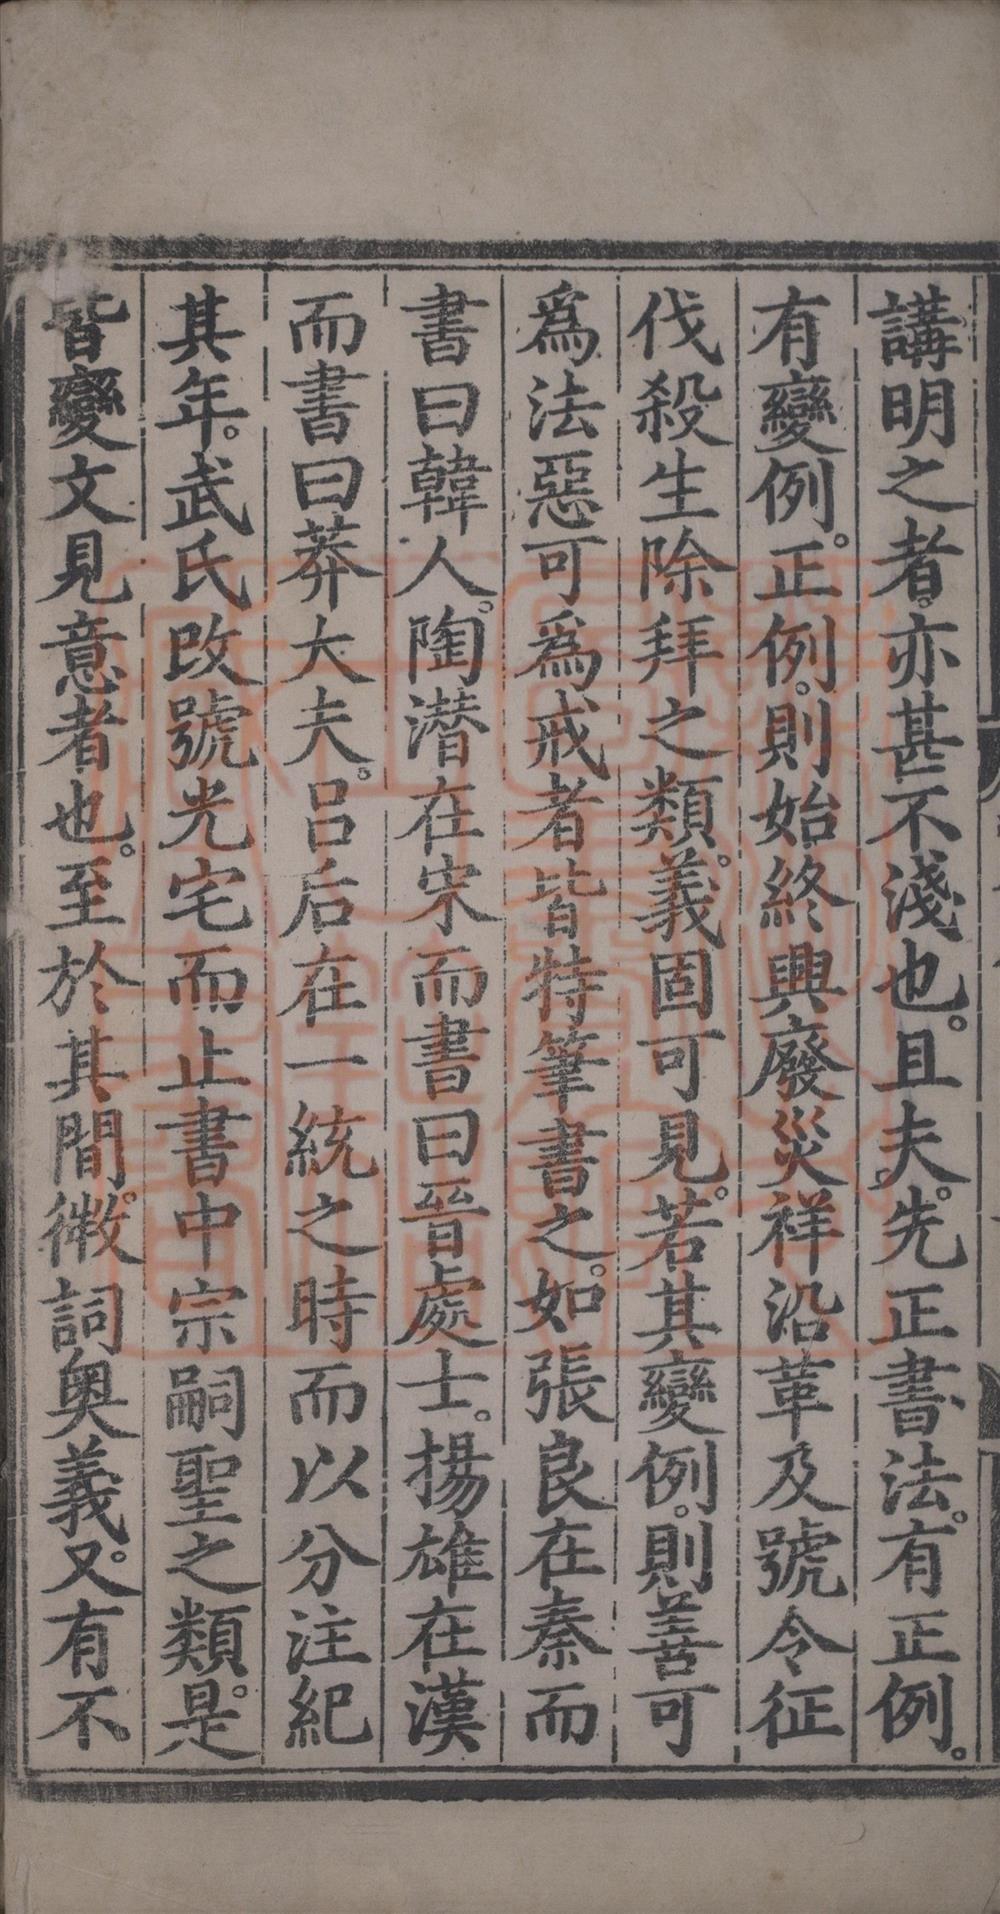 講明之者。亦甚不淺也。且夫。先正書法。有正例。
有變例。正例。則始終興廢災祥沿革及號令征
伐殺生除拜之類。義固可見。若其變例。則善可
爲法惡可爲戒者皆特筆書之。如張良在秦而
書曰韓人。陶潛在宋而書曰晉處士。揚雄在漢
而書曰莽大夫。呂后在一統之時而以分注紀
其年。武氏改號光宅而止書中宗嗣聖之類。是
皆變文見意者也。至於其間。微詞奥義。又有不